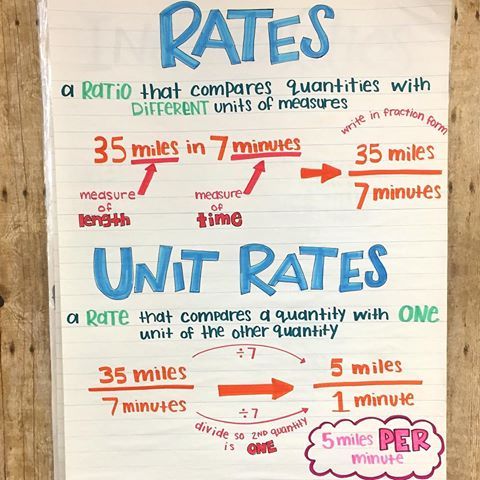 RATES
a RATIO that compares quantities with
DIFFERENT units of measures
write in fraction form
35 miles in 7 minutes
35 miles
7 minutes
measure
of
length
measure
of
time
UNIT RATES
a RATE that compares a quantity with ONE
unit of the other quantity
÷7
35 miles
7 minutes
5 miles
1 minute
÷7
divide so 2ND quantity
is ONE
5 miles PER
minute